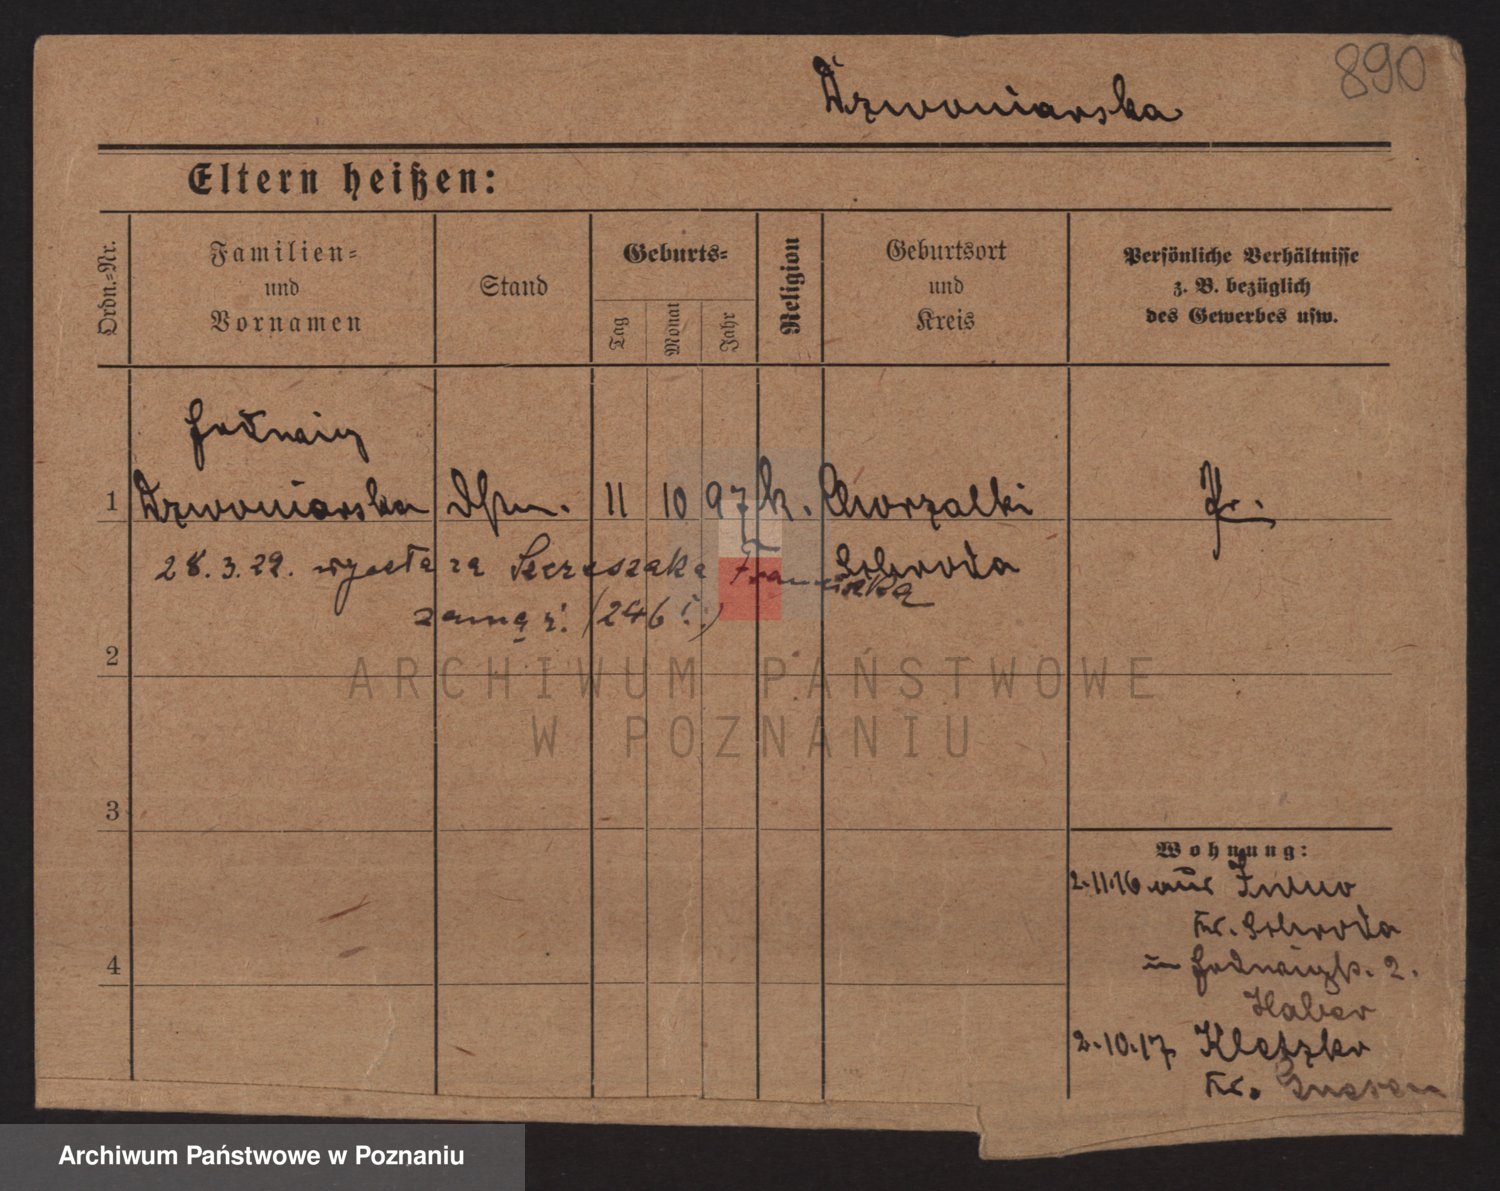 890
Dzwoniarska
Eltern heißen:
Ordn.-Nr.
Familien-
und
Vornamen
Stand
Geburts-
Tag
Monat
Jahr
Religion
Geburtsort
und
Kreis
Persönliche Verhältnisse
z. B. bezüglich
des Gewerbes usw.
Hedwig
1 Dzwoniarska 11 10 97 k. Chorzalki
Schroda
28.3.22. wyszła za Franciszka
zamąż. (246 i.)
2
3
4
ARCHIWUM PAŃSTWOWE
W POZNANIU
Wohnung:
2.11.16 aus
Kr. Schroda
in Hedwigstr. 2.
Haber
2.10.17 Kletzko
Kr. Gnesen
Archiwum Państwowe w Poznaniu